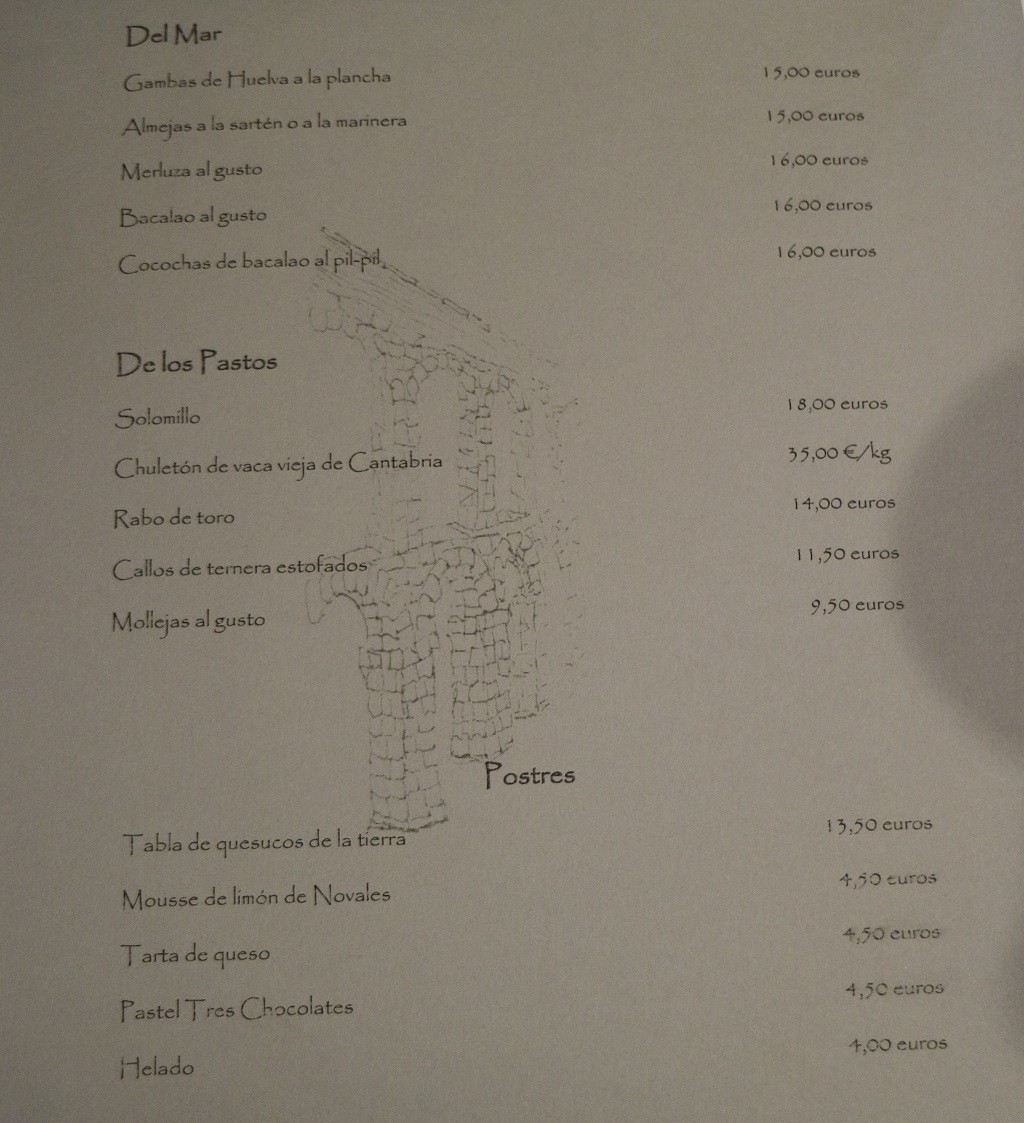 Del Mar
Gambas de Huelva a la plancha 15,00 euros
Almejas a la sartén o a la marinera 15,00 euros
Merluza al gusto 16,00 euros
Bacalao al gusto 16,00 euros
Cocochas de bacalao al pil-pil 16,00 euros
De los Pastos
Solomillo 18,00 euros
Chuletón de vaca vieja de Cantabria 35,00 €/kg
Rabo de toro 14,00 euros
Callos de ternera estofados 11,50 euros
Mollejas al gusto 9,50 euros
Postres
Tabla de quesucos de la tierra 13,50 euros
Mousse de limón de Novales 4,50 euros
Tarta de queso 4,50 euros
Pastel Tres Chocolates 4,50 euros
Helado 4,00 euros